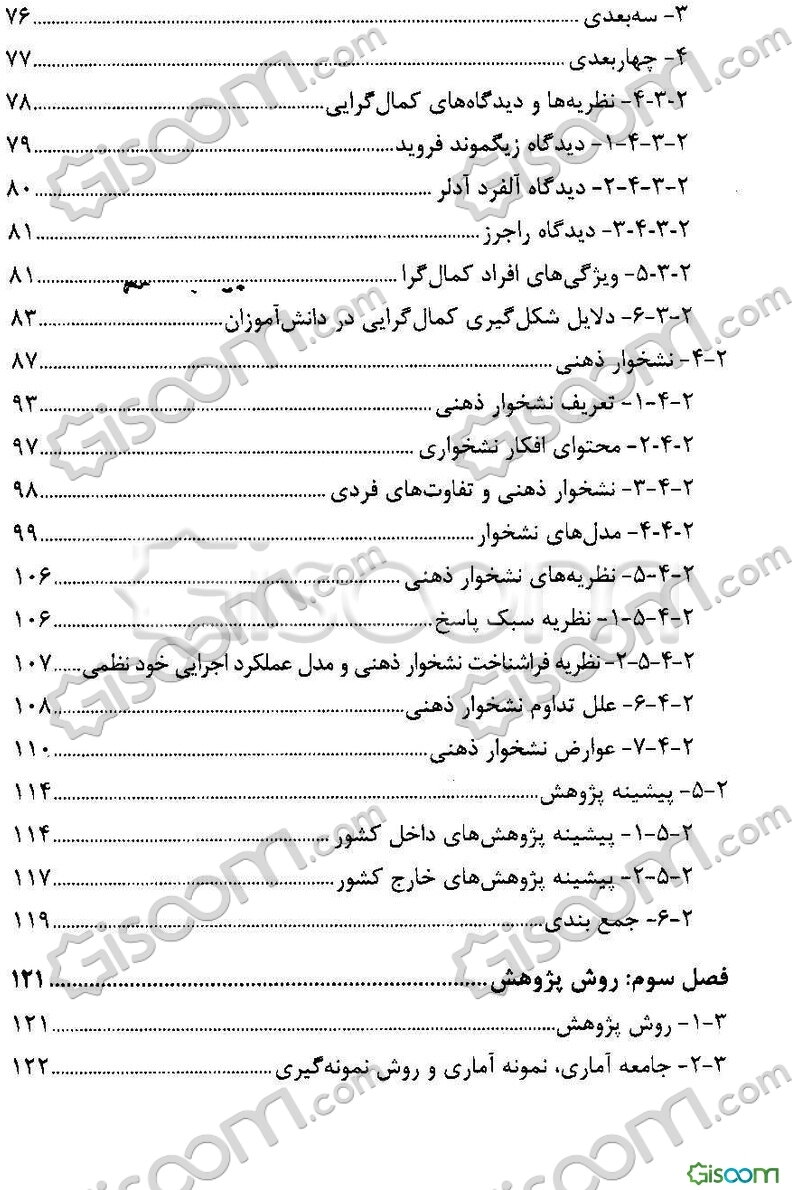 ۳- سه‌بعدی ........ ۷۶
۴- چهاربعدی ........ ۷۷
۲-۳-۴- نظریه‌ها و دیدگاه‌های کمال‌گرایی ........ ۷۸
۲-۳-۴-۱- دیدگاه زیگموند فروید ........ ۷۹
۲-۳-۴-۲- دیدگاه آلفرد آدلر ........ ۸۰
۲-۳-۴-۳- دیدگاه راجرز ........ ۸۱
۲-۳-۵- ویژگی‌های افراد کمال‌گرا ........ ۸۱
۲-۳-۶- دلایل شکل‌گیری کمال‌گرایی در دانش‌آموزان ........ ۸۳
۲-۴- نشخوار ذهنی ........ ۸۷
۲-۴-۱- تعریف نشخوار ذهنی ........ ۹۳
۲-۴-۲- محتوای افکار نشخواری ........ ۹۷
۲-۴-۳- نشخوار ذهنی و تفاوت‌های فردی ........ ۹۸
۲-۴-۴- مدل‌های نشخوار ........ ۹۹
۲-۴-۵- نظریه‌های نشخوار ذهنی ........ ۱۰۶
۲-۴-۵-۱- نظریه سبک پاسخ ........ ۱۰۶
۲-۴-۵-۲- نظریه فراشناخت نشخوار ذهنی و مدل عملکرد اجرایی خود نظمی ...... ۱۰۷
۲-۴-۶- علل تداوم نشخوار ذهنی ........ ۱۰۸
۲-۴-۷- عوارض نشخوار ذهنی ........ ۱۱۰
۲-۵- پیشینه پژوهش ........ ۱۱۴
۲-۵-۱- پیشینه پژوهش‌های داخل کشور ........ ۱۱۴
۲-۵-۲- پیشینه پژوهش‌های خارج کشور ........ ۱۱۷
۲-۶- جمع بندی ........ ۱۱۹
فصل سوم: روش پژوهش ........ ۱۲۱
۳-۱- روش پژوهش ........ ۱۲۱
۳-۲- جامعه آماری، نمونه آماری و روش نمونه‌گیری ........ ۱۲۲
Gisoom.com
Gisoom